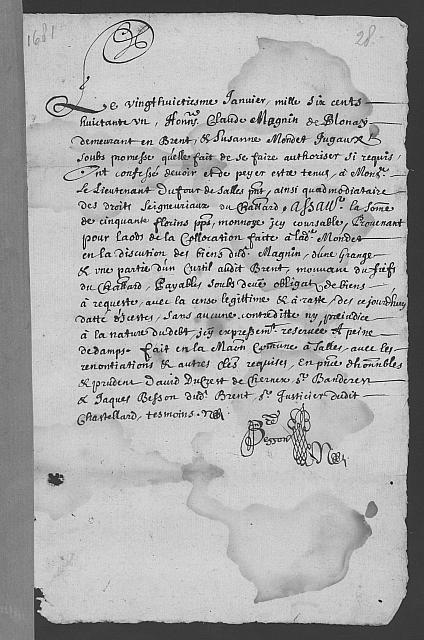 1681
28.
Le vingthuictiesme Janvier, mille six cents
huictante un, Honn. Claude Magnin de Blonay
demeurant en Brent, & Susanne Mondet Jugaux
soubs promesse qu'elle fait de se faire authoriser si requis,
Ont confessé devoir et de payer estre tenus, à Mons.r
le Lieutenant Dufour de Salles pnt, ainsi quadmodiataire
des droits Seigneuriaux du Chastlard, assav.r la some
de cinquante florins pp, monnoye icy coursable, Provenant
pour laods de la Collocation faite à lad. Mondet
en la discution des biens dud. Magnin, d'une Grange
& une partie d'un Curtil audit Brent, mouvans du fief
du Chastlard, Payables soubs deüe obligat. de biens
à requeste, avec la cense legittime & à raste, des ce jourdhuy
datté d'icertes, sans aucune contraditte ny prejudice
à la nature du debt, icy expressem.t reservée A peine
de damps. fait en la Main Comune à Salles, avec les
renontiations & autres cles requises, en pnce d'honnibles
& prudent David Ducrest de Chernex, s.r Banderet
& Jaques Besson dud. Brent, s.r Justicier dudit
Chastellard, tesmoins.
Besson